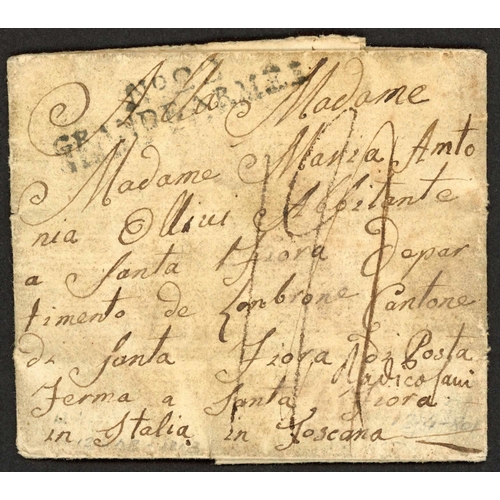 No 22
GRANDE ARMÉE
Alla Madame
Madame Maria Anto
nia Ollivi Abbitante
a Santa Fiora Depar
timento de Lombrone Cantone
di Santa Fiora Di Posta
Radicofani
Ferma a Santa Fiora
in Italia in Toscana